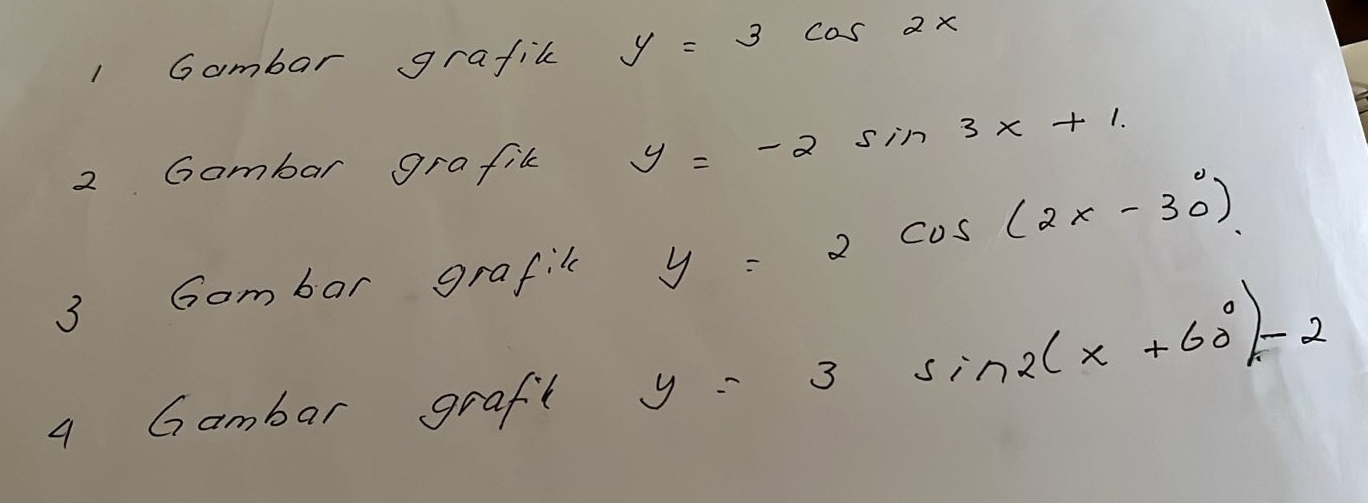 1 Gambar grafik y = 3 cos 2x
2. Gambar grafik y = -2 sin 3x + 1.
3 Gambar grafik y = 2 cos (2x - 30°).
4 Gambar grafik y = 3 sin2(x + 60°) - 2